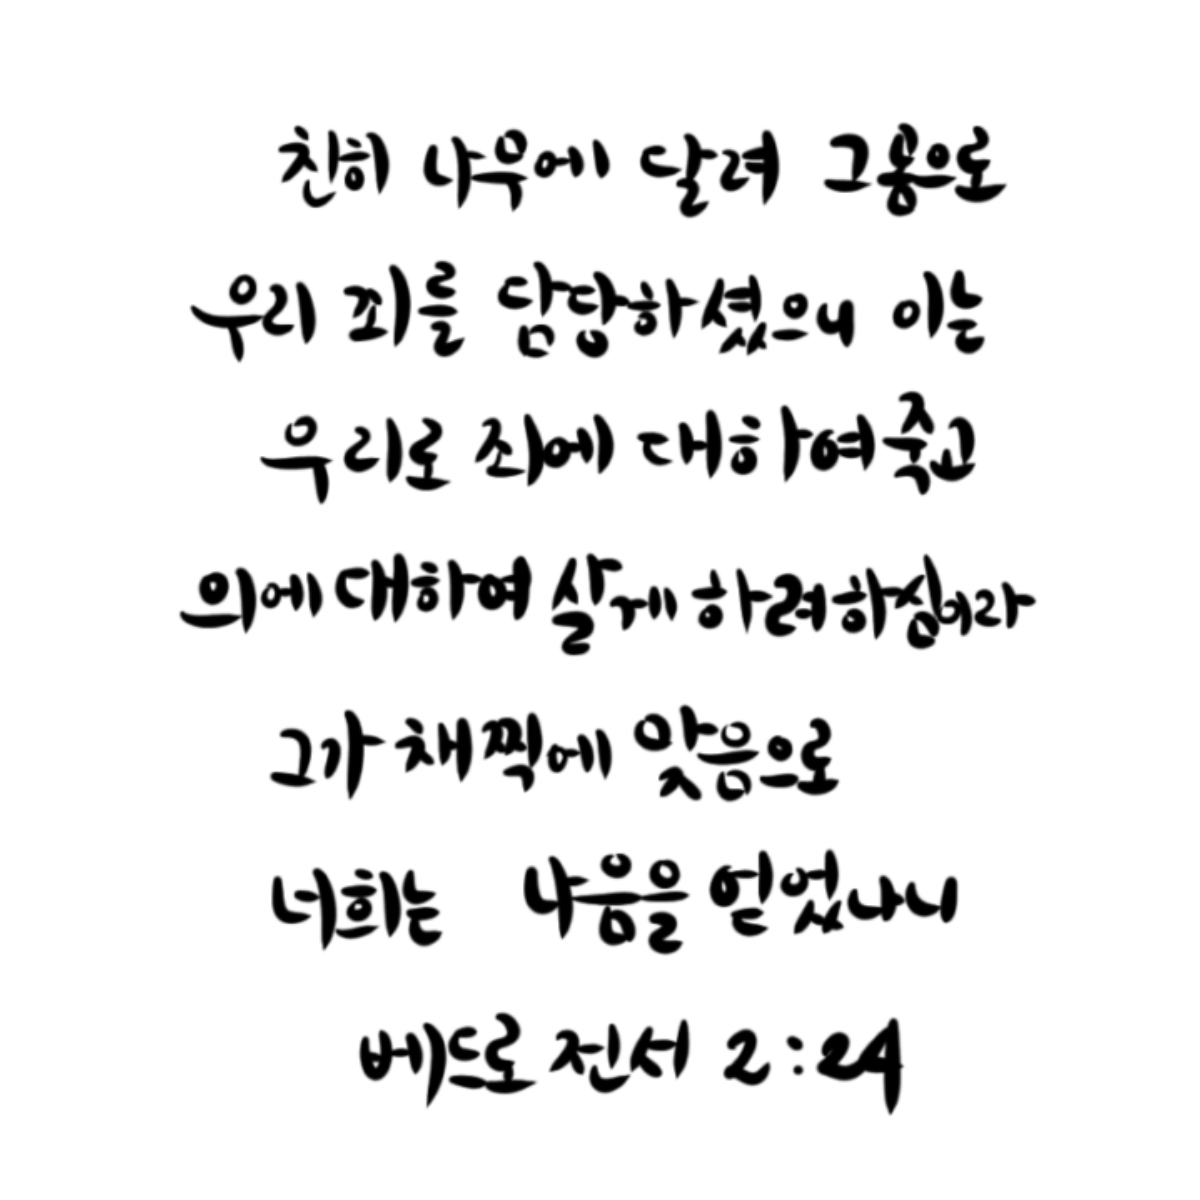 친히 나무에 달려 그 몸으로
우리 죄를 담당하셨으니 이는
우리로 죄에 대하여 죽고
의에 대하여 살게 하려하심이라
그가 채찍에 맞음으로
너희는 나음을 얻었나니
베드로 전서 2:24